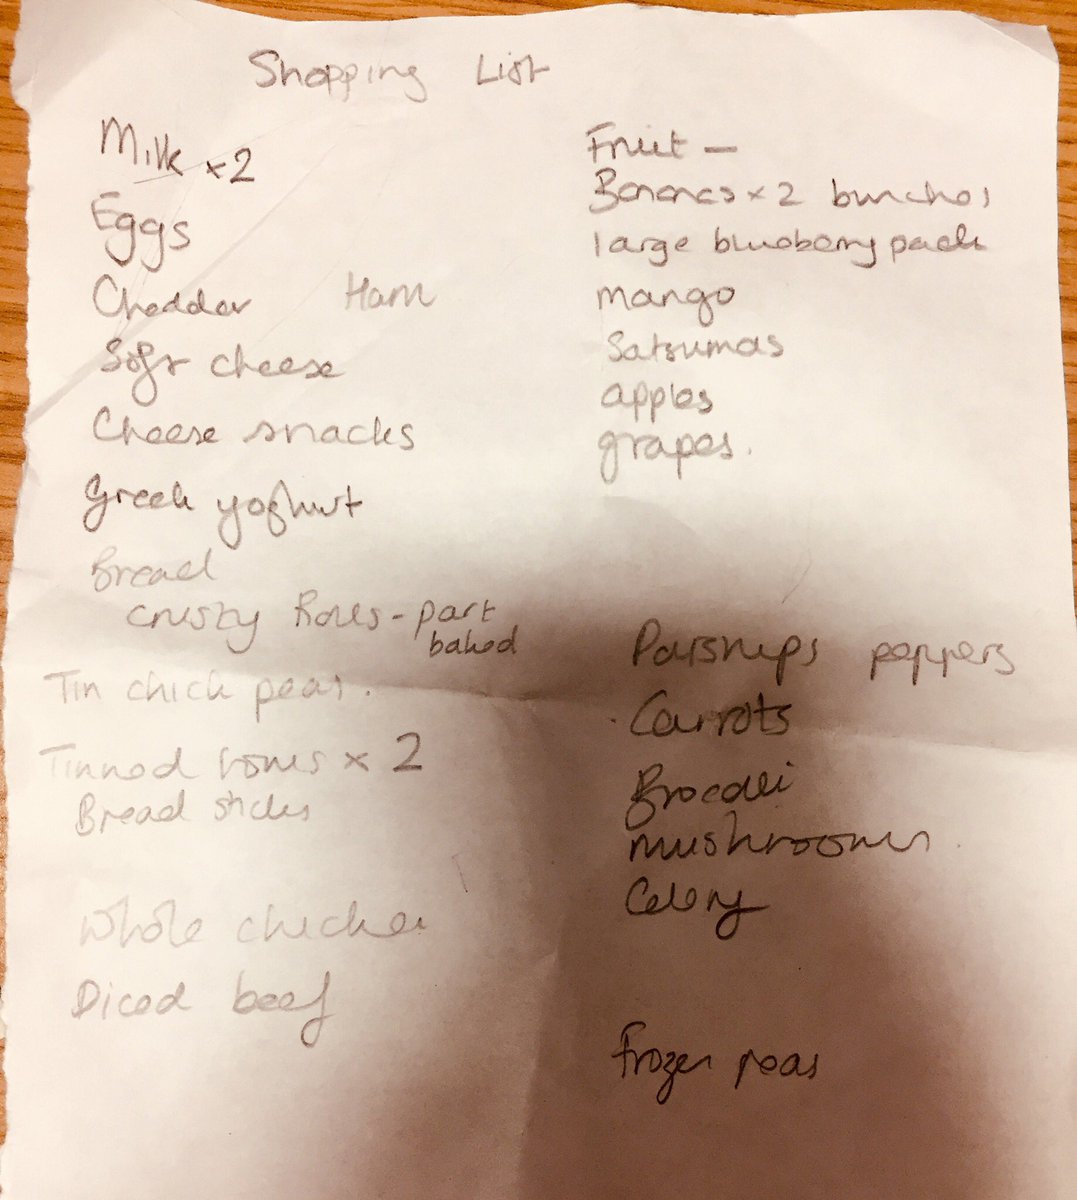 Shopping List
Milk x2
Eggs
Cheddar Ham
Soft cheese
Cheese snacks
Greek yoghurt
Bread
crusty Rolls - part
baked
Tin chick peas.
Tinned toms x 2
Bread sticks
Whole chicken
Diced beef
Fruit -
Bananas x 2 bunches
large blueberry pack
mango
Satsumas
apples
grapes.
Parsnips peppers
Carrots
Brocolli
mushrooms.
Celery
Frozen peas